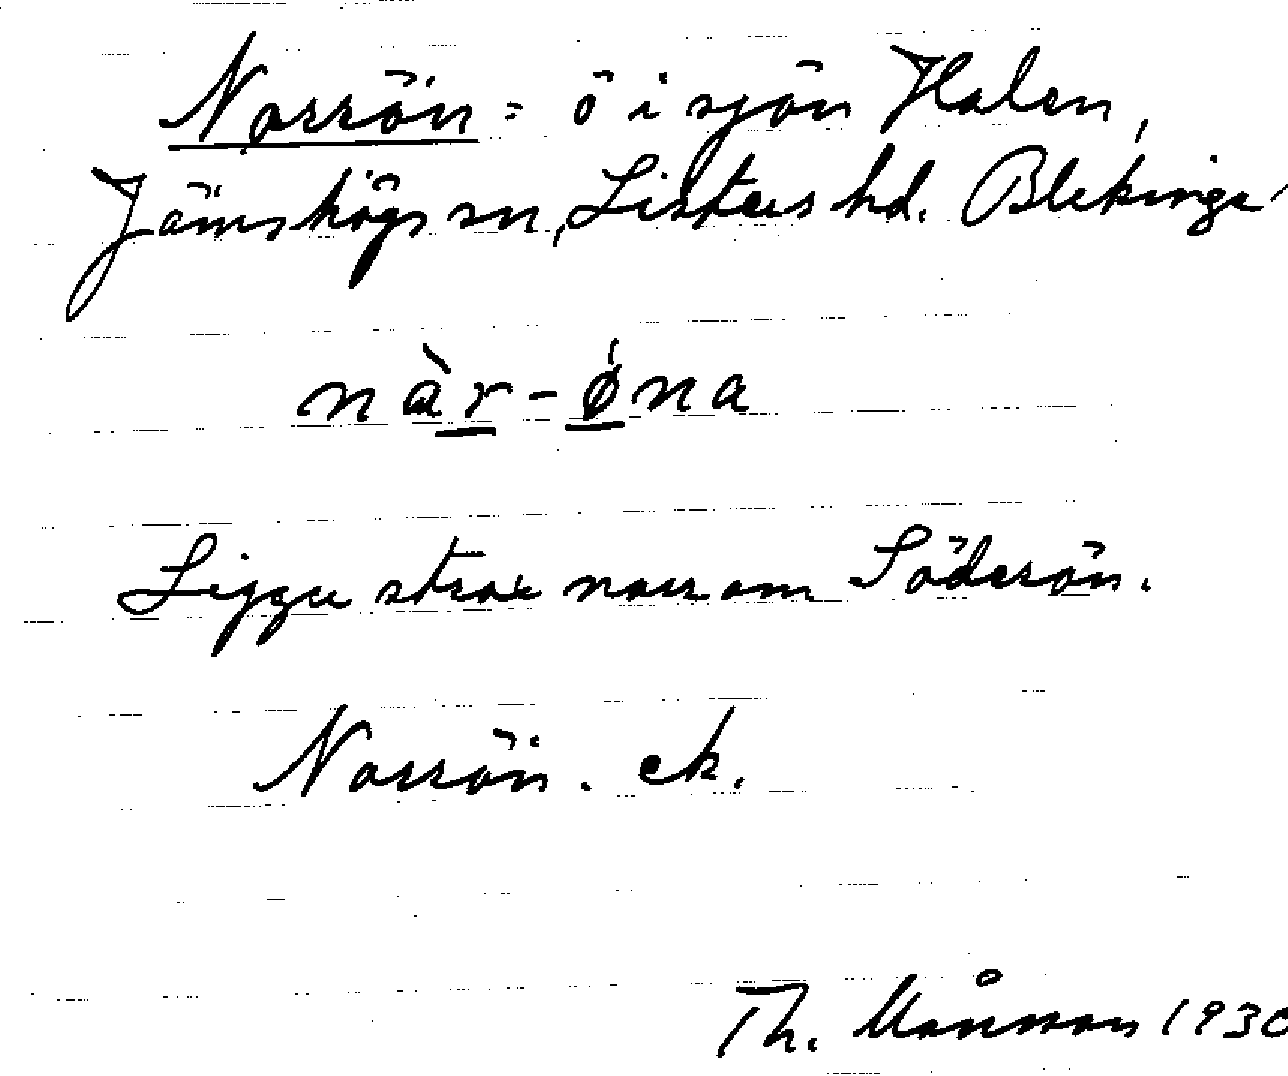 Norrön = ö i sjön Halen,
Jämshögs sn, Listers hd. Blekinge
nàr-ǿna
Ligger strax norr om Söderön.
Norrön. ek.
Th. Månsson 1930